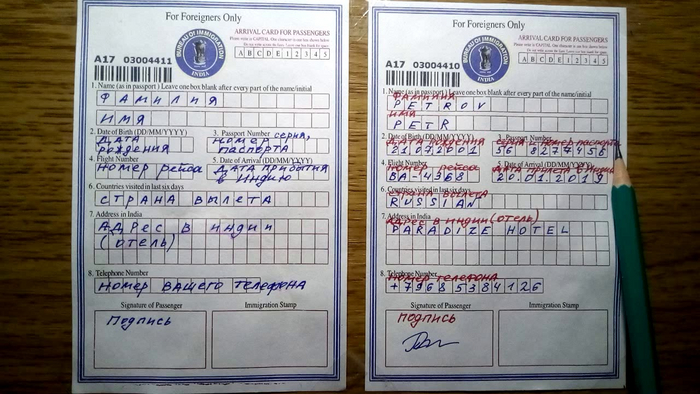 For Foreigners Only
ARRIVAL CARD FOR PASSENGERS
Please write in CAPITAL. One character in one box shown below
Do not write across the lines. Leave one box blank for space
A B C D E 1 2 3 4 5
BUREAU OF IMMIGRATION
INDIA
A17 03004411
1. Name (as in passport) Leave one box blank after every part of the name/initial
ФАМИЛИЯ
ИМЯ
2. Date of Birth (DD/MM/YYYY) 3. Passport Number серия,
ДАТА рождения
номер паспорта
4. Flight Number 5. Date of Arrival (DD/MM/YYYY)
Номер рейса
ДАТА прибытия в Индию
6. Countries visited in last six days
СТРАНА ВЫЛЕТА
7. Address in India
Адрес в индии
(отель)
8. Telephone Number
Номер вашего телефона
Signature of Passenger Immigration Stamp
Подпись
For Foreigners Only
ARRIVAL CARD FOR PASSENGERS
Please write in CAPITAL. One character in one box shown below
Do not write across the lines. Leave one box blank for space
A B C D E 1 2 3 4 5
BUREAU OF IMMIGRATION
INDIA
A17 03004410
1. Name (as in passport) Leave one box blank after every part of the name/initial
ФАМИЛИЯ
PETROV
ИМЯ
PETR
2. Date of Birth (DD/MM/YYYY) 3. Passport Number
ДАТА рождения серия и номер паспорта
21072001 56 8277956
4. Flight Number 5. Date of Arrival (DD/MM/YYYY)
Номер рейса ДАТА прилета в Индию
BA-4368 20.01.2019
6. Countries visited in last six days
СТРАНА ВЫЛЕТА
RUSSIAN
7. Address in India
Адрес в Индии (отель)
PARADIZE HOTEL
8. Telephone Number
Номер телефона
+79685384126
Signature of Passenger Immigration Stamp
подпись